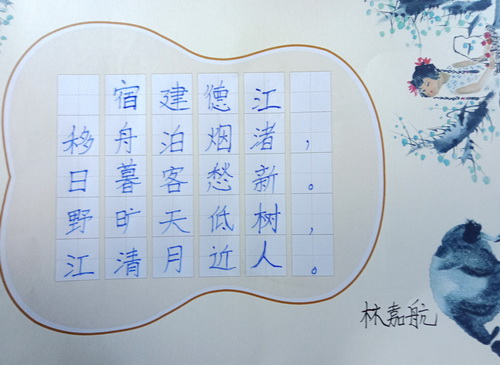 宿建德江
移舟泊烟渚，
日暮客愁新。
野旷天低树，
江清月近人。
林嘉航